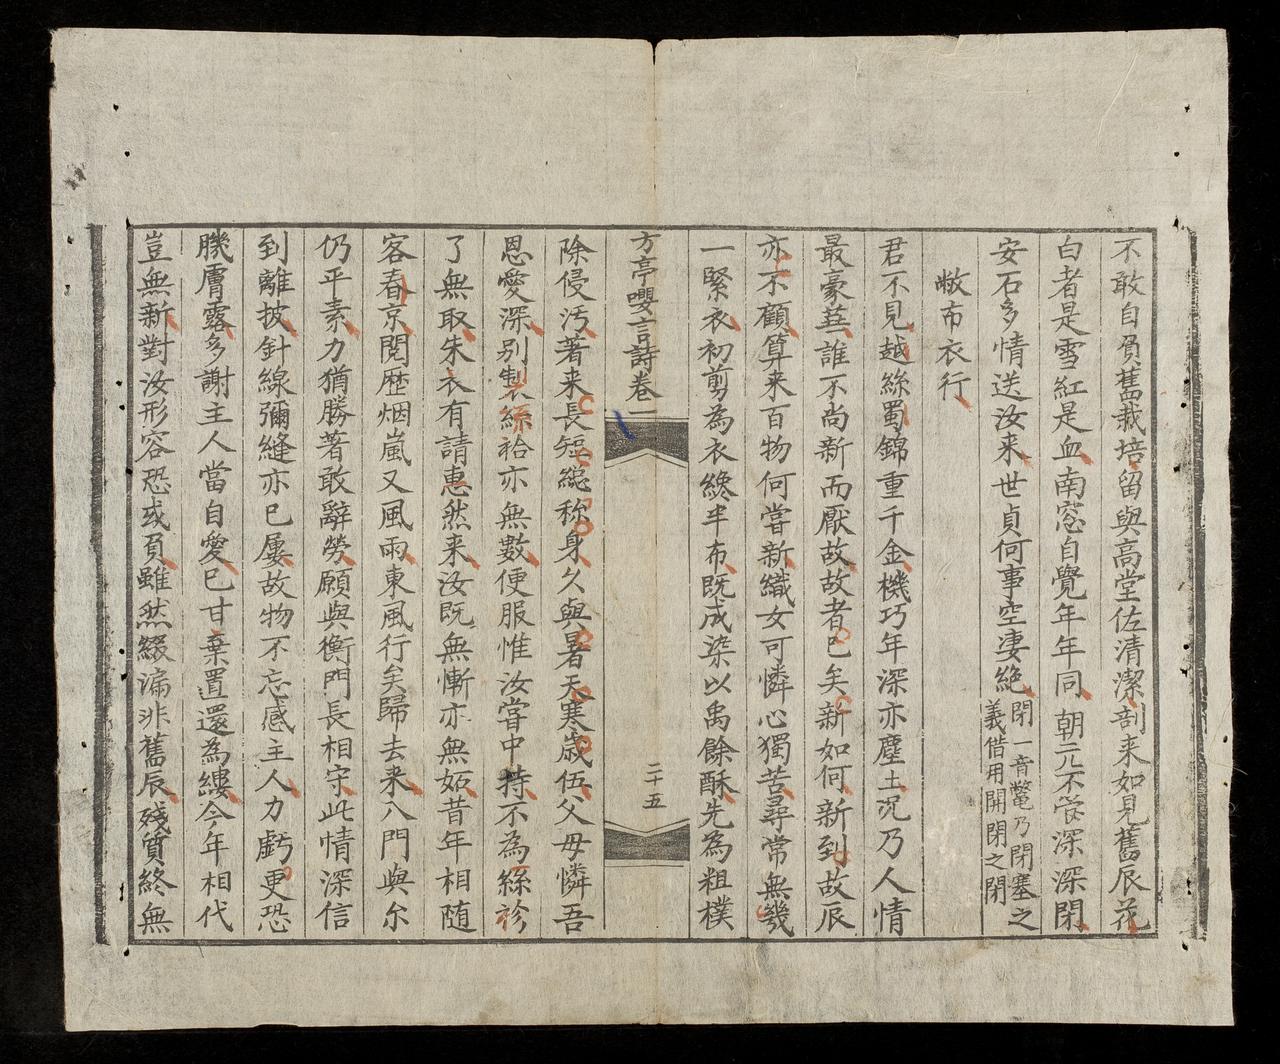 不敢自負舊栽培留與高堂佐清潔剖来如見舊辰花
白者是雪紅是血南窓自覺年年同朝元不啓深深閉
安石多情送汝来世貞何事空凄絶閉一音鼈乃閉塞之
義借用開閉之閉
敝布衣行
君不見越絲蜀錦重千金機巧年深亦塵土况乃人情
最豪華誰不尚新而厭故故者已矣新如何新到故辰
亦不顧算来百物何嘗新織女可憐心獨苦尋常無幾
一緊衣初剪為衣終半布既成染以禹餘酥先為粗樸
方亭嚶言詩卷一
二十五
除侵污著来長短総称身久與暑天寒歳伍父母憐吾
恩愛深别製絲袷亦無數便服惟汝嘗中持不為絲袗
了無取朱衣有請惠然来汝既無慚亦無妬昔年相随
客春京閱歴烟嵐又風雨東風行矣歸去来入門與尔
仍平素力猶勝著敢辭勞願與衡門長相守此情深信
到離披針線彌縫亦已屡故物不忘感主人力虧更恐
腠膚露多謝主人當自愛已甘棄置還為縷今年相代
豈無新對汝形容恐或負雖然綴漏非舊辰殘質終無